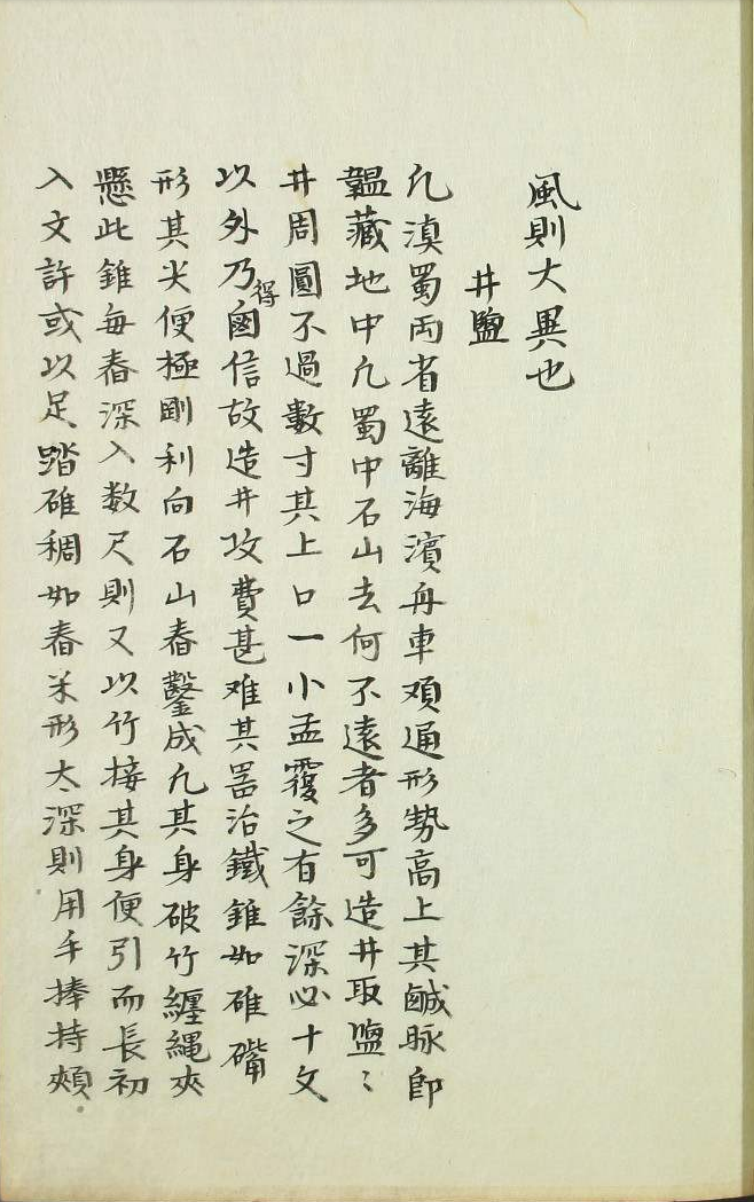 風則大異也
井鹽
凢滇蜀両省遠離海濱舟車艱通形勢高上其鹹脉即
韞藏地中凢蜀中石山去何不遠者多可造井取鹽〻
井周圓不過數寸其上口一小盂覆之有餘深必十文
以外乃得鹵信故造井攻費甚难其噐治鐵錐如碓嘴
形其尖便極剛利向石山舂鑿成凢其身破竹纒縄夾
懸此錐每舂深入数尺則又以竹接其身便引而長初
入文許或以足踏碓稠如舂米形太深則用手捧持頻